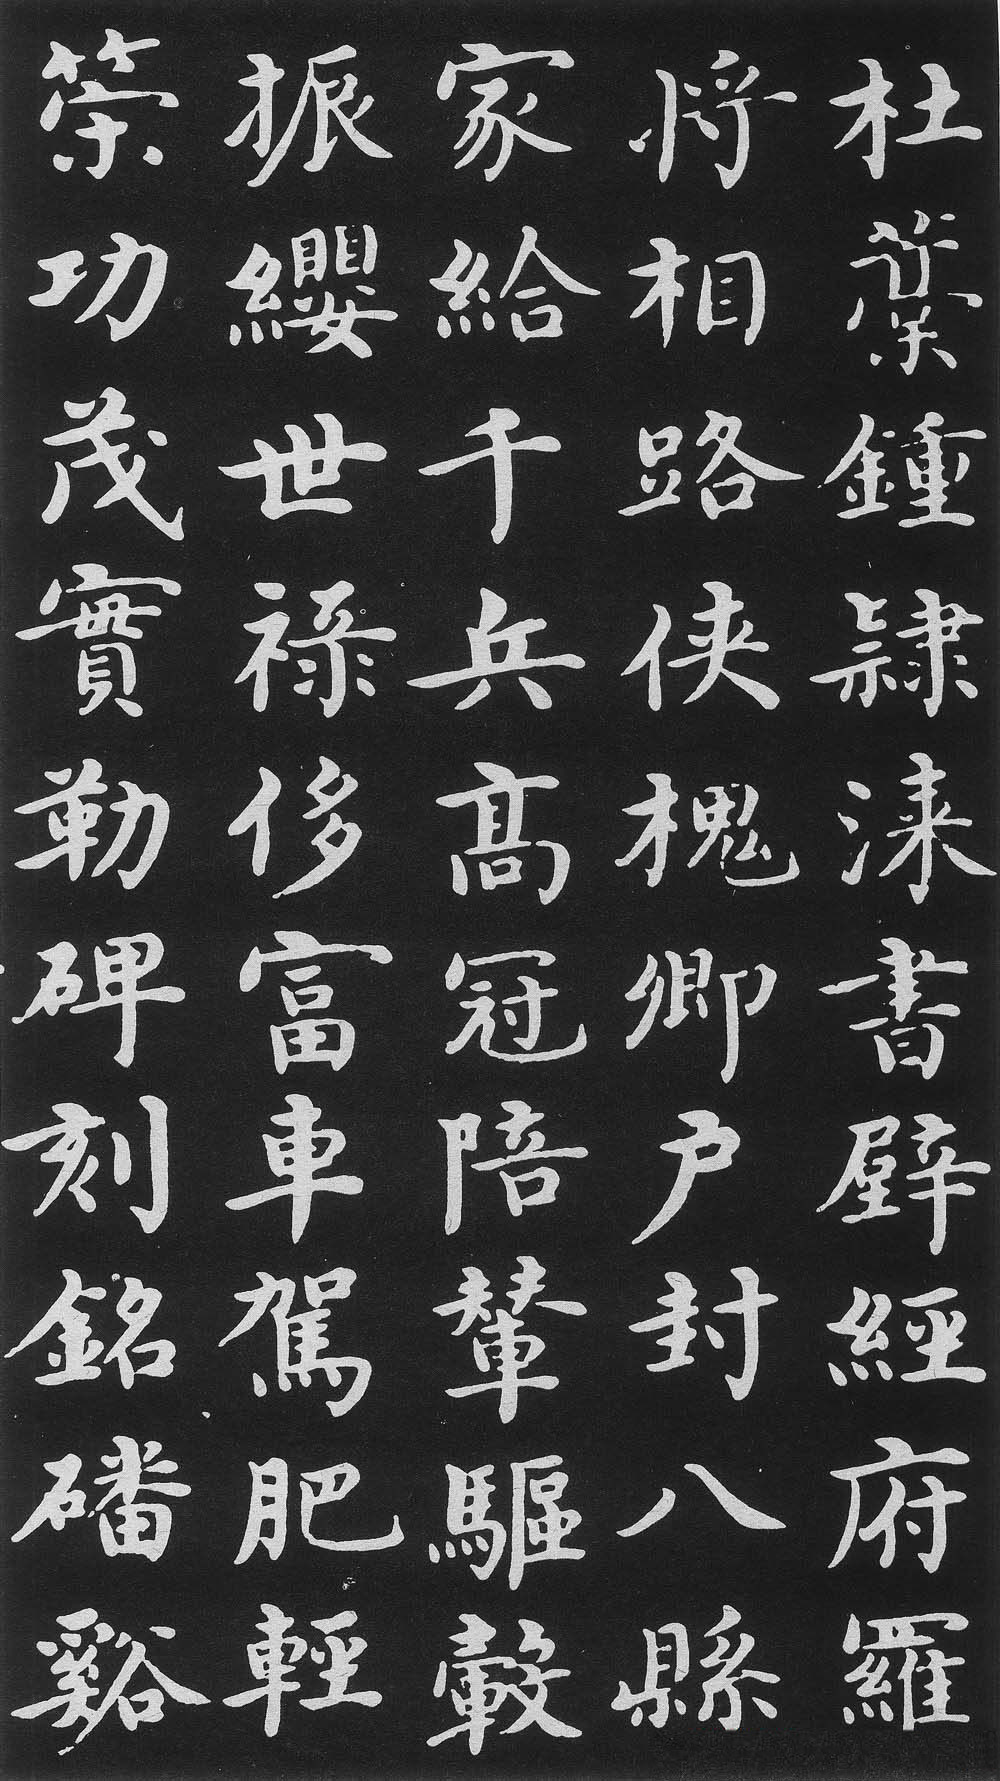 杜稾鍾隷漆書壁經府羅
將相路俠槐卿户封八縣
家給千兵高冠陪輦驅轂
振纓世禄侈富車駕肥輕
策功茂實勒碑刻銘磻谿